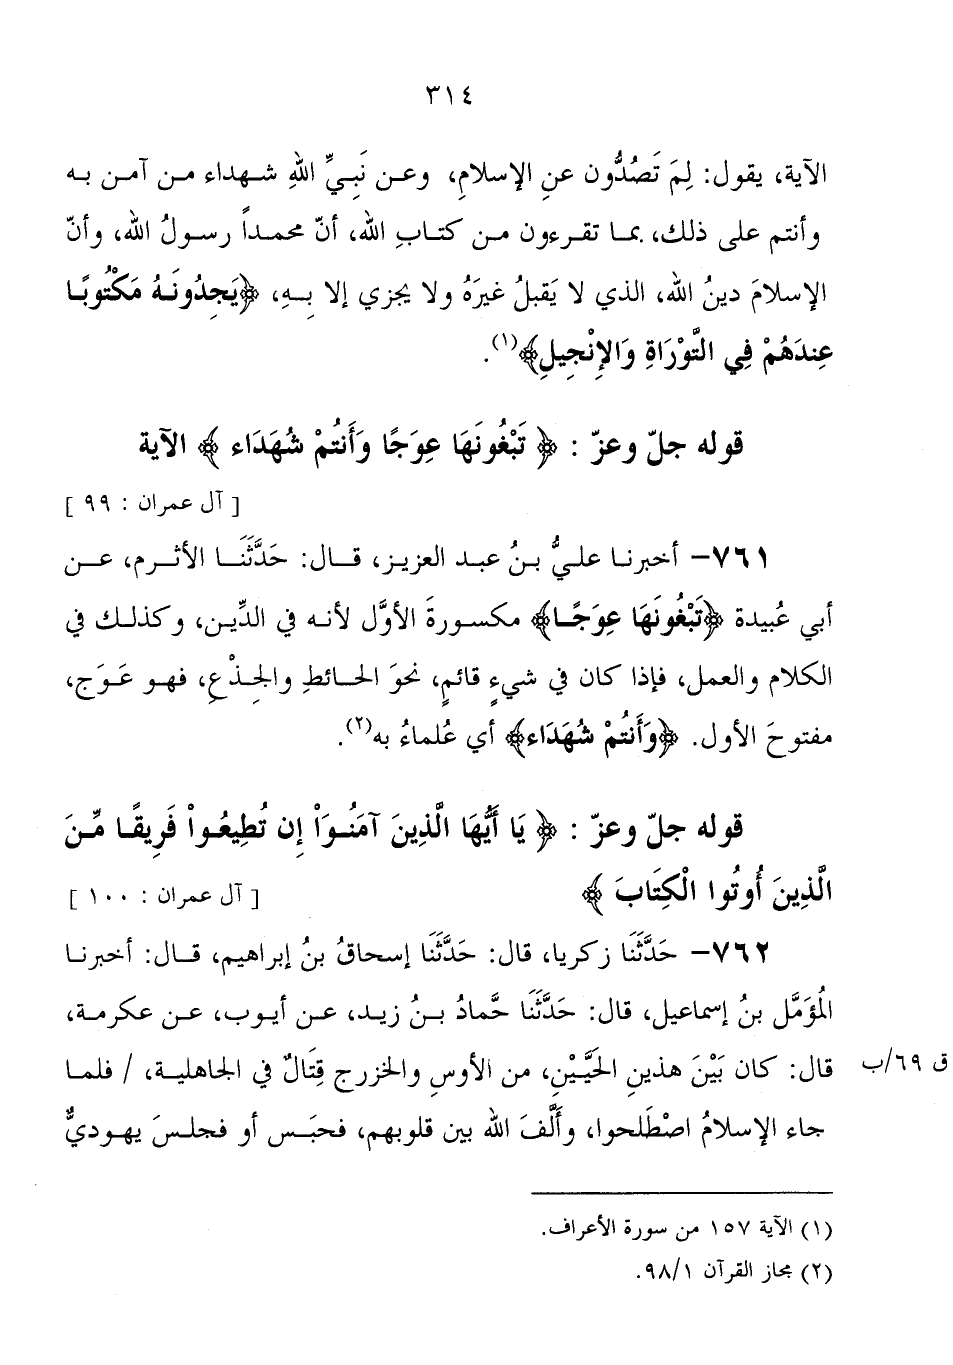 ٣١٤
الآية، يقول: لِمَ تَصُدُّون عنِ الإسلامِ، وعن نَبِيِّ اللهِ شهداء من آمن به
وأنتم على ذلك، بما تقرءون من كتابِ الله، أنّ محمداً رسولُ الله، وأنّ
الإسلامَ دينُ الله، الذي لا يَقبلُ غيرَهُ ولا يجزي إلا بِهِ، ﴿يَجِدُونَهُ مَكْتُوبًا
عِندَهُمْ فِي التَّوْرَاةِ وَالإِنْجِيلِ﴾(١).
قوله جلّ وعزّ : ﴿ تَبْغُونَهَا عِوَجًا وَأَنتُمْ شُهَدَاء ﴾ الآية
[ آل عمران : ٩٩ ]
٧٦١– أخبرنا عليُّ بنُ عبد العزيز، قال: حَدَّثَنَا الأثرم، عن
أبي عُبيدة ﴿تَبْغُونَهَا عِوَجًا﴾ مكسورةَ الأوَّل لأنه في الدِّين، وكذلك في
الكلام والعمل، فإذا كان في شيءٍ قائمٍ، نحوَ الحائطِ والجِذْعِ، فهو عَوَج،
مفتوحَ الأول. ﴿وَأَنتُمْ شُهَدَاء﴾ أي عُلماءُ به(٢).
قوله جلّ وعزّ : ﴿ يَا أَيُّهَا الَّذِينَ آمَنُوَاْ إِن تُطِيعُواْ فَرِيقًا مِّنَ
الَّذِينَ أُوتُوا الْكِتَابَ ﴾ [ آل عمران : ١٠٠ ]
٧٦٢– حَدَّثَنَا زكريا، قال: حَدَّثَنَا إسحاقُ بنُ إبراهيم، قال: أخبرنا
المُؤَمَّل بنُ إسماعيل، قال: حَدَّثَنَا حَّمادُ بنُ زيد، عن أيوب، عن عكرمة،
قال: كان بَيْنَ هذينِ الحَيَّيْنِ، من الأوسِ والخزرج قِتَالٌ في الجاهلية، / فلما
ق ٦٩/ب
جاء الإسلامُ اصْطَلحوا، وأَلَّفَ الله بين قلوبهم، فحبَس أو فجلسَ يهوديٌّ
(١) الآية ١٥٧ من سورة الأعراف.
(٢) مجاز القرآن ٩٨/١.